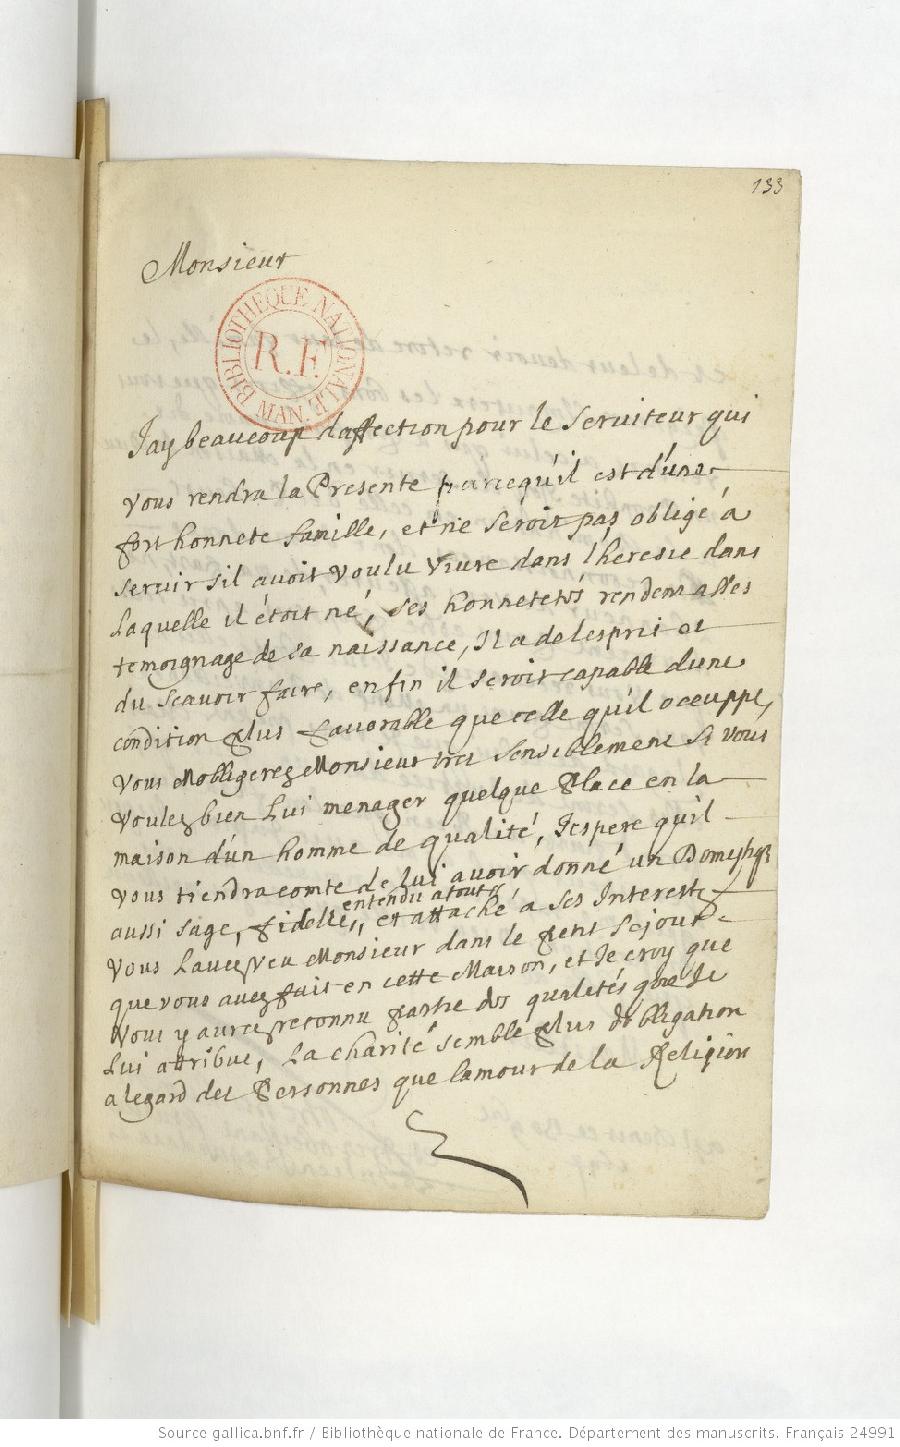 133
Monsieur
BIBLIOTHEQUE NATIONALE MAN.
R.F.
Jay beaucoup daffection pour le Seruiteur qui
vous rendra la Presente parcequ'il est d'une
fort honnete famille, et ne seroit pas obligé à
seruir sil auoit voulu viure dans lheresie dans
laquelle il étoit né, ses honnetetés rendent asses
temoignage de sa naissance, Il a de lesprit et
du scauoir faire, enfin il seroit capable dune
condition plus fauorable que celle qu'il occuppe,
vous mobligerez Monsieur tres sensiblement si vous
voulez bien lui menager quelque Place en la
maison d'un homme de qualité, Jespere qu'il
vous tiendra comte de lui auoir donné un Domestique
entendu a tout
aussi sage, fidelle, et attaché a ses Interests
vous lauez veu Monsieur dans le petit sejour
que vous auez fait en cette Maison, et Je croy que
vous y aurez reconnu partie des qualités que Je
lui attribue, la charité semble plus dobligation
a legard des Personnes que lamour de la Religion
Source gallica.bnf.fr / Bibliothèque nationale de France. Département des manuscrits. Français 24991